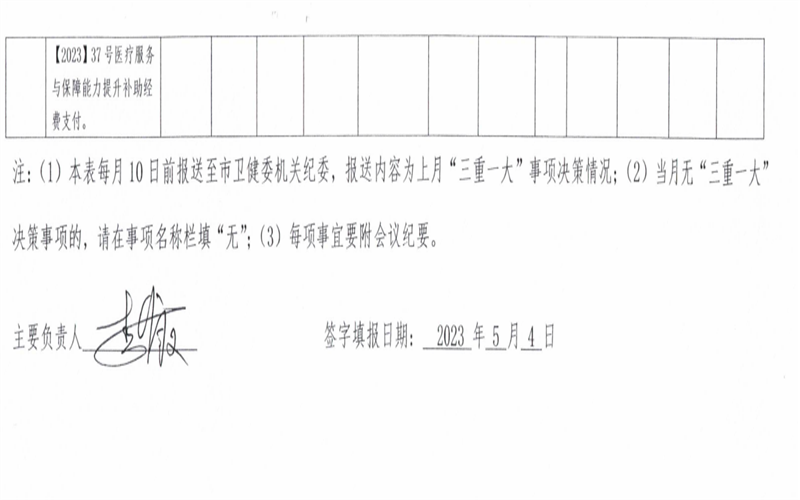 【2023】37号医疗服务
与保障能力提升补助经
费支付。
注：(1)本表每月10日前报送至市卫健委机关纪委，报送内容为上月“三重一大”事项决策情况；(2)当月无“三重一大”
决策事项的，请在事项名称栏填“无”；(3)每项事宜要附会议纪要。
主要负责人 签字填报日期： 2023 年 5 月 4 日